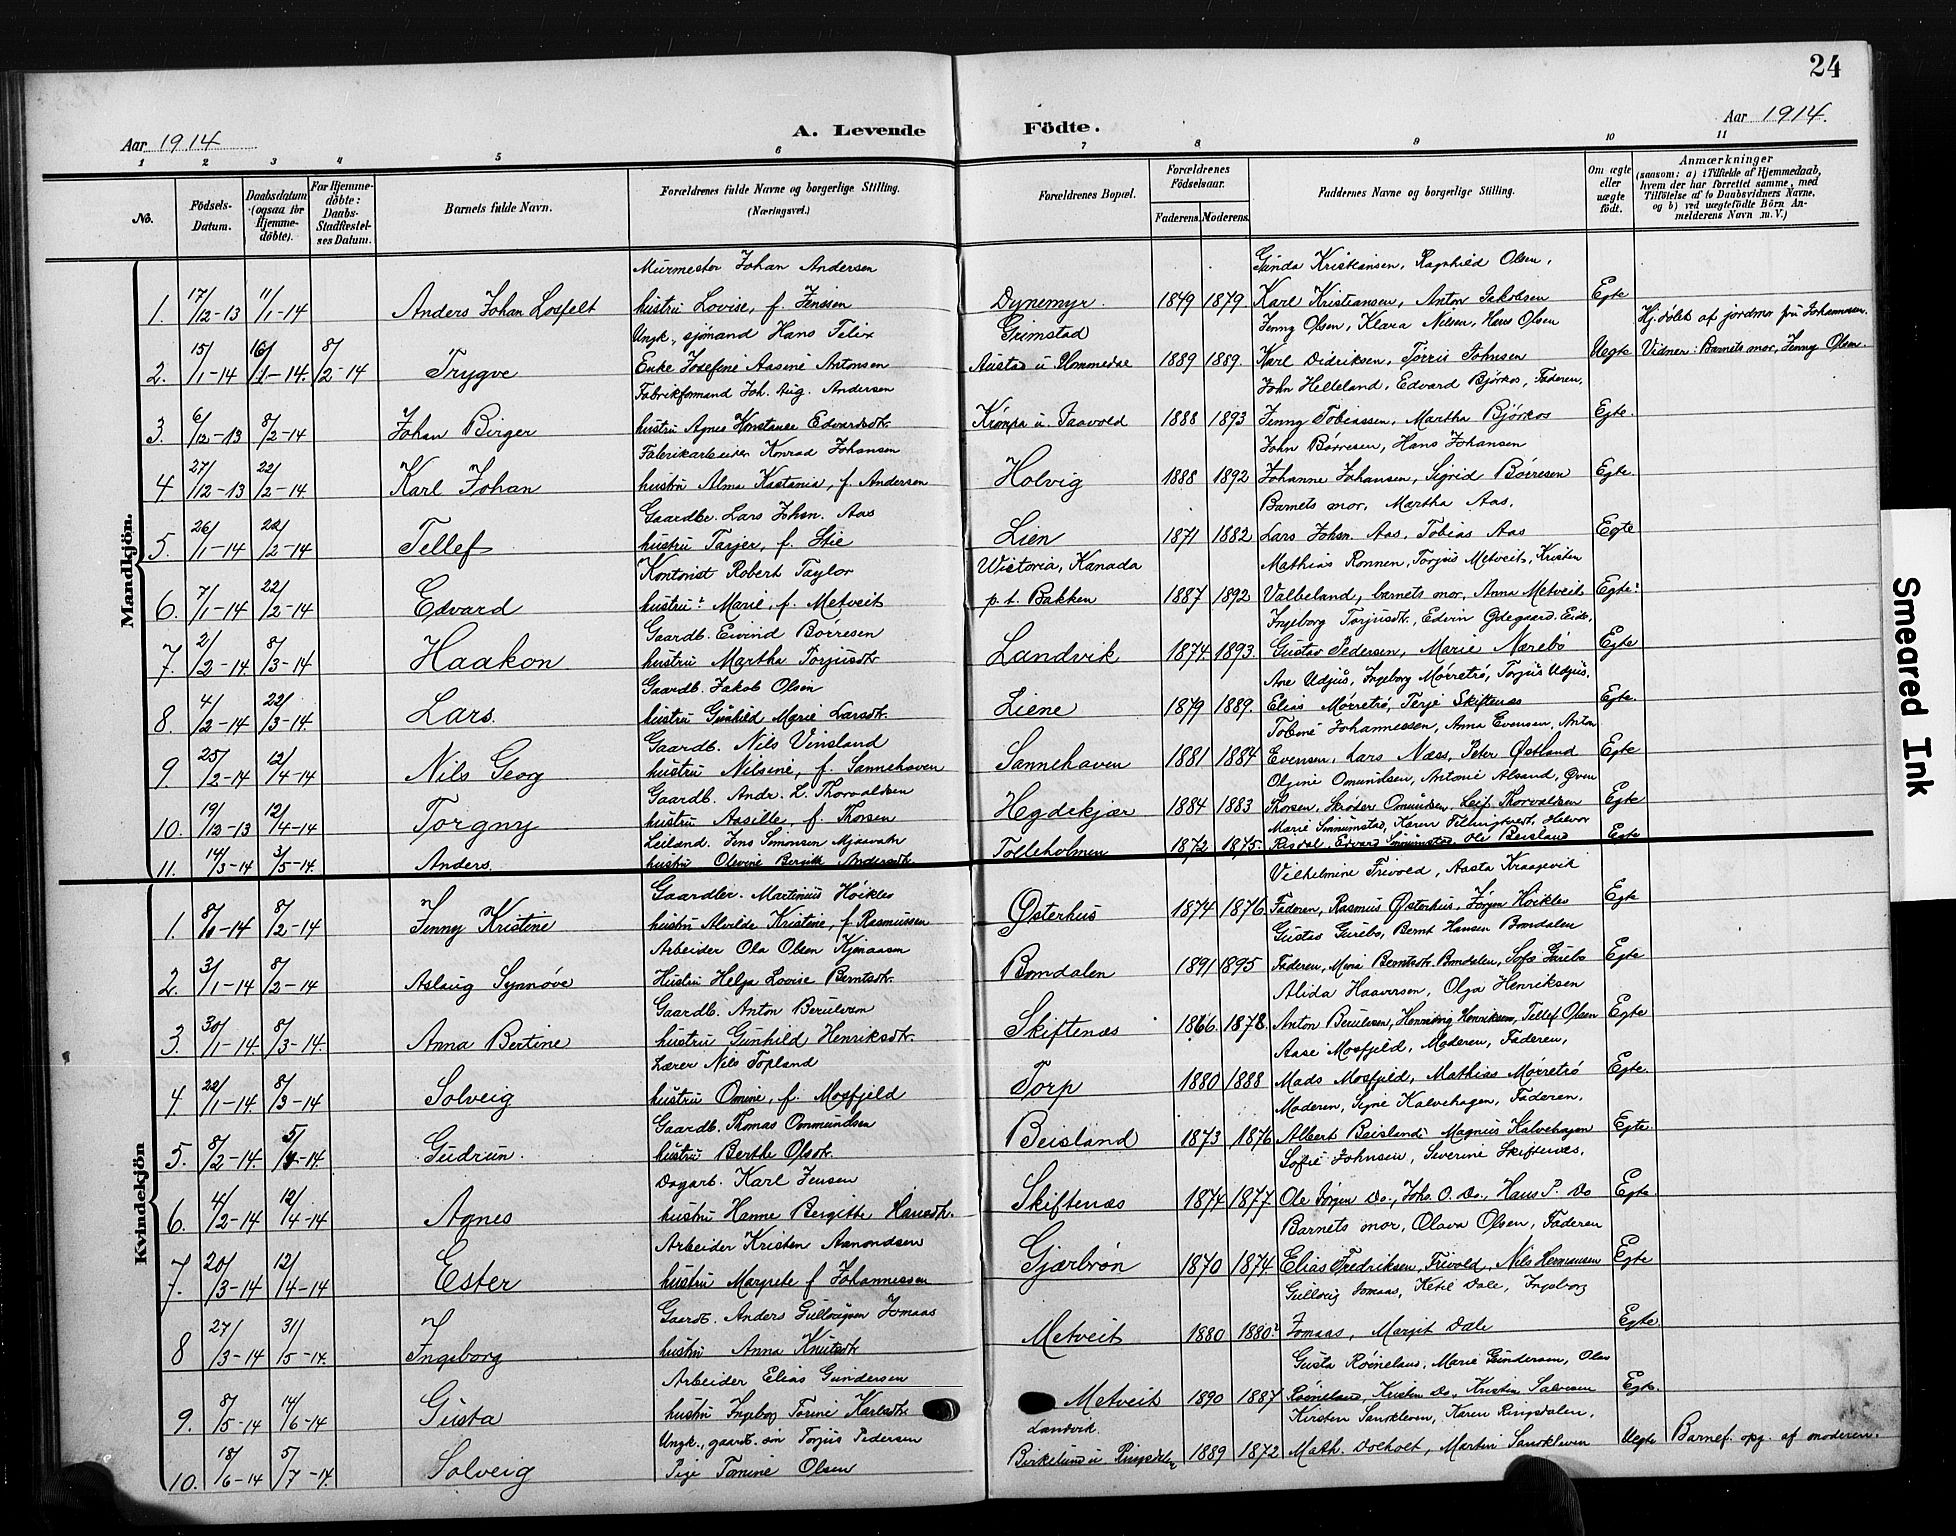 24
Aar 1914
A. Levende Födte.
Aar 1914.
1 2 3 4 5 6 7 8 9 10 11
No.
Födsels-Datum.
Daabsdatum (ogsaa for Hjemme-döbte).
For Hjemme-döbte: Daabs-Stadfæstel-ses Datum.
Barnets fulde Navn.
Forældrenes fulde Navne og borgerlige Stilling.
(Næringsvei.)
Forældrenes Bopæl.
Forældrenes Födselsaar.
Faderens. Moderens.
Faddernes Navne og borgerlige Stilling.
Om ægte eller uægte födt.
Anmærkninger
(saasom: a) i Tilfælde af Hjemmedaab,
hvem der har forrettet samme, med
Tilföielse af to Daabsvidners Navne,
og b) ved uægtefödte Börn An-
melderens Navn .m.V.)
Mandkjön.
Murmester Johan Andersen
Gunda Kristiansen, Ragnhild Olsen,
1. 17/12-13 11/1-14 Anders Johan Losfelt hustru Lovise, f. Jenssen Dynemyr. 1849 1879 Karl Kristiansen, Anton Jakobsen Egte
Ungk., sjömand Hans Felix Grimstad Jenny Olsen, Klara Nilsen, Hans Olsen Hj.døbt af jordmor fru Johannessen.
2. 15/1-14 16/1-14. 8/2-14 Trygve Enke Josefine Aasine Antonsen Austad u Hommedal 1889 1889. Karl Didriksen, Torris Johnsen Uegte Vidner: Barnets mor, Jenny Olsen.
Fabrikformand Joh. Aug. Andersen John Helleland, Edvard Bjørkos, Faderen,
3. 6/12-13 8/2-14 Johan Birger hustru Agnes Konstanse Edvardsdtr. 1888 1893 Jenny Tobiassen, Martha Bjørkos Egte.
Fabrikarbeider Konrad Johansen John Børresen, Hans Johansen
4 27/12-13 22/2-14 Karl Johan hustru Alma Kastania, f. Andersen Holvig 1888 1892 Johanne Johansen, Sigrid Børresen Egte
Gaardbr. Lars Johsn. Aas Barnets mor, Martha Aas,
5. 26/1-14 22/2-14 Tellef hustru Tarjer, f. Stie Lien 1871 1882 Lars Johsn. Aas, Tobias Aas Egte
Kontorist Robert Taylor Wictoria, Kanada Mathias Ronnen, Torjus Metveit, Kristen
6. 7/1-14 22/2-14 Edvard hustru: Marie, f. Metveit p.t. Bakken 1887 1892 Valbeland, barnets mor, Anna Metveit Egte:
Gaardb. Eivind Børresen Ingeborg Torjusdtr., Edvin Ødegaard, Eide,
7. 2/2-14 8/3-14 Haakon hustru Martha Torjusdtr Landvik 1874 1893. Gustav Pedersen, Marie Nærebø Egte
Gaardb. Jakob Olsen Ane Udjus, Ingeborg Mørretrø, Torjus Udjus,
8 4/2-14 22/3-14. Lars. hustru Gunhild Marie Larsdtr. Liene 1879 1889. Elias Mørretrø, Terje Skiftenes Egte
Gaardb. Nils Vinsland Tobine Johannessen, Anna Evensen, Anton
9. 25/2-14 12/4-14 Nils Georg hustru Nilsine, f. Sannehaven Sannehaven 1881 1884 Evensen, Lars Næss, Peter Østland Egte
Gaardb. Andr. L. Thorvaldsen Olgine Omundsen, Antonie Alsand,
10. 19/12-13 12/4-14 Torgny hustru Aasille, f. Thorsen Hegdekjær 1884 1883 Thorsen, Omundsen, Leif Thorvaldsen Egte
Leiland. Jens Simonsen Mjaavatn
11. 14/3-14 3/5-14. Anders. hustru Olevine Bergitte Andersdtr Tolleholmen 1872 1875. Risdal, Edvard Ole Beisland Egte
Kvindekjön
Gaardbr. Martinius Høikles Vilhelmine Trivold, Aasta Kraagevik
1. 8/1-14 8/2-14 Jenny Kristine hustru Alvilde Kristine, f. Rasmussen Østerhus 1874 1876. Faderen, Rasmus Østerhus, Jørgen Høikles Egte
Arbeider Ola Olsen Kjenaasen Gustav Gurebo, Bernt Hansen Bomdalen
2. 3/1-14 8/2-14 Aslaug Synnøve Hustru Helga Lovise Berntsdtr. Bomdalen 1891 1895 Faderen, Maria Berntsdtr. Bomdalen, Sofs Gurebo Egte
Gaardb. Anton Berulsen Alida Haaversen, Olga Henriksen
3. 30/1-14 8/3-14. Anna Bertine hustru Gunhild Henriksdtr. Skiftenæs 1866. 1878. Anton Berulsen, Henning Henriksen, Tellef Olsen Egte
Lærer Nils Topland Aase Mosfjeld, Moderen, Faderen,
4. 22/1-14 8/3-14 Solveig hustru Omine, f. Mosfjeld Torp 1880 1888 Mads Mosfjeld, Mathias Mørretrø Egte.
Gaardb. Thomas Ommundsen Moderen, Signe Kalvehagen, Faderen,
5. 8/2-14. 5/4-14. Gudrun. hustru Berthe Olsdtr. Beisland 1873 1876 Albert Beisland, Magnus Kalvehagen Egte.
Dagarb. Karl Jensen Sofie Johnsen, Severine Skiftenæs,
6. 4/2-14 12/4-14 Agnes hustru Hanne Bergitte Hansdtr. Skiftenæs 1874 1877 Ole Jørgen Do., Johs. O. Do., Hans P. Do Egte.
Arbeider Kristen Aamondsen Barnets mor, Olava Olsen, Faderen
7. 20/3-14 12/4-14 Ester hustru Margrete f Johannessen Gjærbrøn 1870 1874. Elias Fredriksen, Trivold, Nils Hermansen Egte
Gaardb. Anders Gullougsen Jomaas Gulloug Jomaas, Ketil Dale, Ingeborg
8 27/3-14 31/5-14. Ingeborg hustru Anna Knutsdtr Metveit 1880 1880: Jomaas, Margit Dale Egte
Arbeider Elias Gundersen Gusta Rønneland, Marie Gundersen, Olav
9. 8/5-14 14/6-14 Gusta hustru Ingebor Torine Karlsdtr. Metveit 1890 1887 Rønneland, Kristen Do, Kristen Salvesen Egte.
Ungk., gaardb. søn Torjus Pedersen Landvik. Kirsten Sandkleven, Karen Ringdalen,
10. 18/6-14 5/7-14. Solveig Pige Tomine Olsen Birkelund u Ringdalen 1889 1872 Math. Martin Sandkleven Uegte Barnef. opg. af moderen.
Smeared Ink